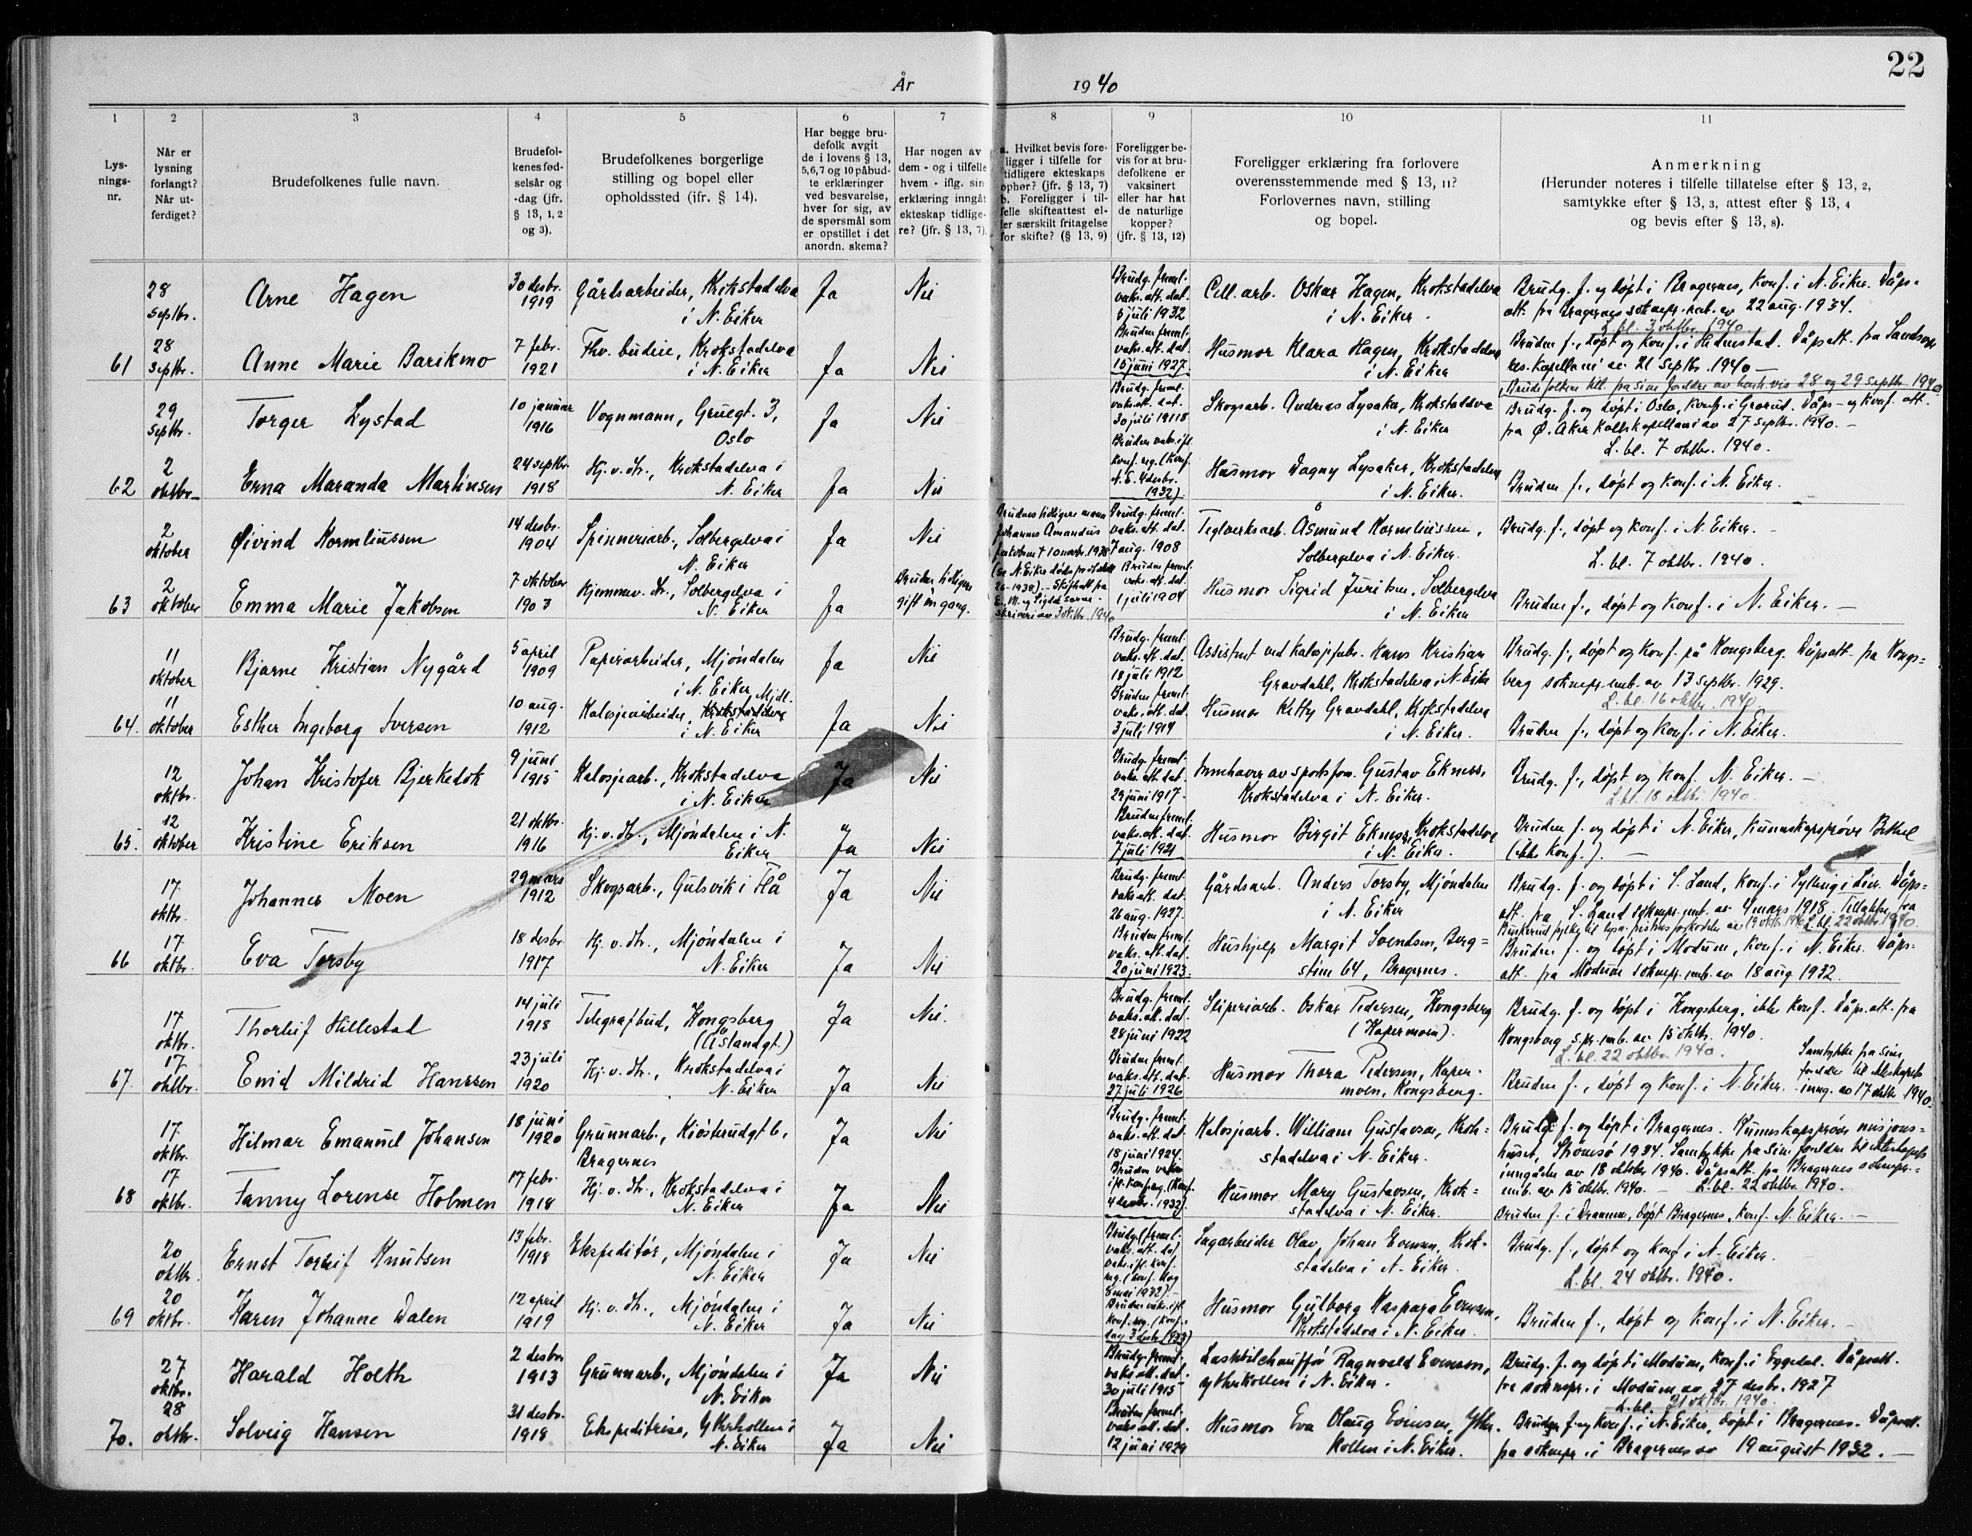 22
År 1940
1 2 3 4 5 6 7 8 9 10 11
Lys-
nings-
nr.
Når er
lysning
forlangt?
Når ut-
ferdiget?
Brudefolkenes fulle navn.
Brudefol-
kenes fød-
selsår og
-dag (jfr.
§ 13, 1, 2
og 3).
Brudefolkenes borgerlige
stilling og bopel eller
opholdssted (ifr. § 14).
Har begge bru-
defolk avgit
de i lovens § 13,
5,6,7 og 10 påbud-
te erklæringer
ved besvarelse,
hver for sig, av
de spørsmål som
er opstillet i det
anordn. skema?
Har nogen av
dem - og i tilfelle
hvem - iflg. sin
erklæring inngåt
ekteskap tidlige-
re? (jfr. § 13, 7).
a. Hvilket bevis fore-
ligger i tilfelle for
tidligere ekteskaps
ophør? (jfr. § 13, 7)
b. Foreligger i til-
felle skifteattest el-
ler særskilt fritagelse
for skifte? (§ 13, 9)
Foreligger be-
vis for at bru-
defolkene er
vaksinert
eller har hat
de naturlige
kopper?
(jfr. § 13, 12)
Foreligger erklæring fra forlovere
overensstemmende med § 13, 11?
Forlovernes navn, stilling
og bopel.
Anmerkning
(Herunder noteres i tilfelle tillatelse efter § 13, 2,
samtykke efter § 13, 3, attest efter § 13, 4
og bevis efter § 13, 8).
28 septbr. Arne Hagen 30 desbr. 1919 Gårdsarbeider, Krokstadelva i N. Eiker Ja Nei
Brudg. freml. vaks. att. dat. 5 juli 1932
Cell. arb. Oskar Hagen, Krokstadelva i N. Eiker.
Brudg. f. og døpt i Bragernes, konf. i N. Eiker. Dåps-
att. fra Bragernes soknepr.emb. av 22 aug. 1934.
L. bl. 3 oktbr. 1940.
61 28 septbr. Anne Marie Barikmo 7 febr. 1921 Fhv. budeie, Krokstadelva i N. Eiker Ja Nei
Bruden freml. vaks. att. dat. 15 juni 1927.
Husmor Klara Hagen, Krokstadelva i N. Eiker
Bruden f., døpt og konf. i Hedrestad. Dåpsatt. fra
res. kapellani av 21 septbr. 1940 —
29 septbr. Torger Lystad 10 januar 1916 Vognmann, Gruegt. 3, Oslo Ja Nei
Brudg. freml. vaks. att. dat. 30 juli 1918
Skogsarb. Andreas Lysaker, Krokstadelva i N. Eiker
Brudefolkene till. fra sine foreldre av henh.vis 28 og 29 septbr. 1940
Brudg. f. og døpt i Oslo, konf. i Grorud. Dåps- og konf. att.
fra Ø. Aker kallskapellani av 27 septbr. 1940. —
L. bl. 7 oktbr. 1940.
62 2 oktbr. Erna Maranda Martinsen 24 septbr. 1918 Hj. v. str., Krokstadelva i N. Eiker Ja Nei
Bruden vaks. ifl. konf. reg. (konf. N. E. 4 desbr. 1932)
Husmor Dagny Lysaker, Krokstadelva i N. Eiker.
Bruden f., døpt og konf. i N. Eiker.
2 oktober Øivind Kormeliussen 14 desbr. 1904 Spinneriarb., Solbergelva i N. Eiker Ja Nei
Brudg. freml. vaks. att. dat. 7 aug. 1908
Teglverksarb. Åsmund Kormeliussen, Solbergelva i N. Eiker.
Brudg. f., døpt og konf. i N. Eiker. —
L. bl. 7 oktbr. 1940.
63 2 oktober Emma Marie Jakobsen 7 oktober 1903 Hjemmev. str., Solbergelva i N. Eiker Ja Bruden tidligere gift én gang.
Brudens tidligere mann
Johannes Amandus
Jakobsen † 10 novbr. 1938
Bruden freml. vaks. att. dat. 1 juli 1904
Husmor Sigrid Juriksen, Solbergelva i N. Eiker
Bruden f., døpt og konf. i N. Eiker. —
11 oktober Bjarne Kristian Nygård 5 april 1909 Papirarbeider, Mjøndalen i N. Eiker Ja Nei
Brudg. freml. vaks. att. dat. 18 juli 1912
Assistent ved kalosjefabr. Hans Kristian Gravdahl, Krokstadelva i N. Eiker
Brudg. f., døpt og konf. på Kongsberg. Dåpsatt. fra Kongs-
berg soknepr.emb. av 13 septbr. 1929.
L. bl. 16 oktbr. 1940.
64. 11 oktober Esther Ingeborg Iversen 10 aug. 1912 Kalosjearbeider, Mjdl. Krokstadelva i N. Eiker Ja Nei
Bruden freml. vaks. att. dat. 3 juli 1914
Husmor Ketty Gravdahl, Krokstadelva i N. Eiker.
Bruden f., døpt og konf. i N. Eiker.
12 oktbr. Johan Kristofer Bjerkedok 9 juni 1915 Kalosjearb., Krokstadelva i N. Eiker Ja Nei
Brudg. freml. vaks. att. dat. 29 juni 1917.
Innehaver av sportsforr. Gustav Eknes, Krokstadelva i N. Eiker.
Brudg. f., døpt og konf. N. Eiker. —
L. bl. 18 oktbr. 1940.
65. 12 oktober Kristine Eriksen 21 oktbr. 1916 Hj. v. str., Mjøndalen i N. Eiker Ja Nei
Bruden freml. vaks. att. dat. 7 juli 1921
Husmor Birgit Eknes, Krokstadelva i N. Eiker.
Bruden f. og døpt i N. Eiker, kunnskapsprøve Bethel
(ikke konf.). —
17. oktbr. Johannes Moen 29 mars 1912 Skogsarb., Gulsvik i Flå Ja Nei
Brudg. freml. vaks. att. dat. 26 aug. 1927.
Gårdsarb. Anders Torsby, Mjøndalen i N. Eiker
Brudg. f. og døpt i S. Land, konf. i Sylling i Lier. Dåps-
att. fra S. Land soknepr.emb. av 4 mars 1918. Tillatelse fra
L. bl. 22 oktbr. 1940.
66 17 oktbr. Eva Torsby 18 desbr. 1917 Hj. v. str., Mjøndalen i N. Eiker Ja Nei
Bruden freml. vaks. att. dat. 20 juni 1923.
Hushjelp Margit Svendsen, Berg-
stien 64, Bragernes.
Bruden f. og døpt i Modum, konf. i N. Eiker. Dåps-
att. fra Modum soknepr.emb. av 18 aug. 1932.
17 oktbr. Thorleif Hillestad 14 juli 1918 Telegrafbud, Kongsberg (Åslandgt.) Ja Nei.
Brudg. freml. vaks. att. dat. 28 juni 1922
Sliperiarb. Oskar Pedersen, Kongsberg (Hapermoen).
Brudg. f. og døpt i Kongsberg, ikke konf. Dåps.att. fra
Kongsberg s.pr.emb. av 15 oktbr. 1940.
L. bl. 22 oktbr. 1940.
67. 17 oktbr. Enid Mildrid Hanssen 23 juli 1920 Hj. v. str., Krokstadelva i N. Eiker Ja Nei
Bruden freml. vaks. att. dat. 27 juli 1926
Husmor Thora Pedersen, Haper-
moen, Kongsberg.
Bruden f., døpt og konf. i N. Eiker.
Samtykke fra sine
foreldre til ekteskapets
inng. av 17 oktbr. 1940.
17. oktbr. Hilmar Emanuel Johansen 18 juni 1920 Grunnarb., Kiøsterudgt 6, Bragernes Ja Nei
Brudg. freml. vaks. att. dat. 18 juni 1924.
Kalosjearb. William Gustavsen, Krok-
stadelva i N. Eiker.
Brudg. f. og døpt i Bragernes. Kunnskapsprøve misjons-
huset, Strømsø 1934. Samtykke fra sine foreldre til ekteskapets
inngåelse av 18 oktbr 1940. Dåpsatt. fra Bragernes soknepr.-
emb. av 15 oktbr. 1940. — L. bl. 22 oktbr. 1940.
68 17 oktbr. Fanny Lorense Holmen 17 febr. 1918 Hj. v. str., Krokstadelva i N. Eiker Ja Nei
Husmor Mary Gustavsen, Krok-
stadelva i N. Eiker.
Bruden f. i Drammen, døpt Bragernes, konf. N. Eiker. —
20 oktbr. Ernst Torleif Knutsen 13 febr. 1918 Ekspeditør, Mjøndalen i N. Eiker Ja Nei
Sagarbeider Olav Johan Evensen, Krok-
stadelva i N. Eiker.
Brudg. f., døpt og konf. i N. Eiker.
L. bl. 24 oktbr. 1940.
69 20 oktbr. Karen Johanne Dalen 12 april 1919 Hj. v. str., Mjøndalen i N. Eiker Ja Nei
Husmor Gulborg Kaspara Evensen, Krokstadelva i N. Eiker.
Bruden f., døpt og konf. i N. Eiker. —
27 oktbr. Harald Holth 2 desbr 1913 Grunnarb., Mjøndalen i N. Eiker Ja Nei
Brudg. freml. vaks. att. dat. 30 juli 1915
Lastebilchauffør Ragnvald Evensen, Ytterkollen i N. Eiker.
Brudg. f. og døpt i Modum, konf. i Eggedal. Dåpsatt.
fra soknepr. i Modum av 27 desbr. 1927
L. bl. 31 oktbr. 1940.
70. 28 oktbr. Solveig Hansen 31 desbr. 1918 Ekspeditrise, Ytterkollen i N. Eiker Ja Nei
Bruden freml. vaks. att. dat. 12 juni 1929
Husmor Eva Olaug Evensen, Ytter-
kollen i N. Eiker.
Bruden f. og konf. i N. Eiker, døpt i Bragernes. Dåpsatt.
fra soknepr. i Bragernes av 19 august 1932. —